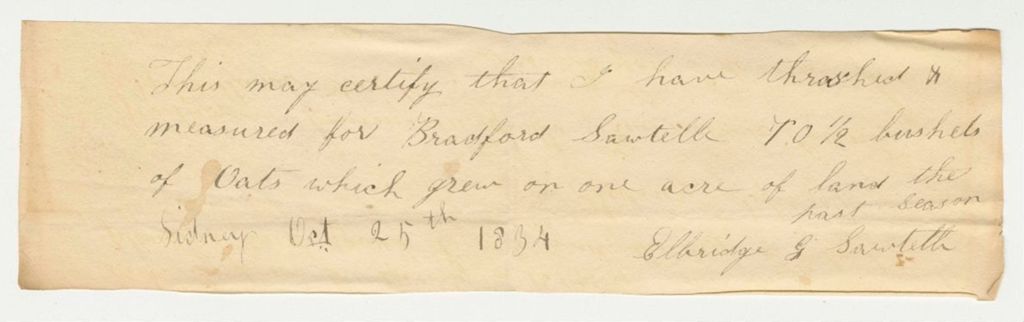 This may certify that I have thrashed &
measured for Bradford Sawtelle 70 1/2 bushels
of Oats which grew on one acre of land the
past season
Sidney Oct 25th 1834
Elbridge G Sawtelle